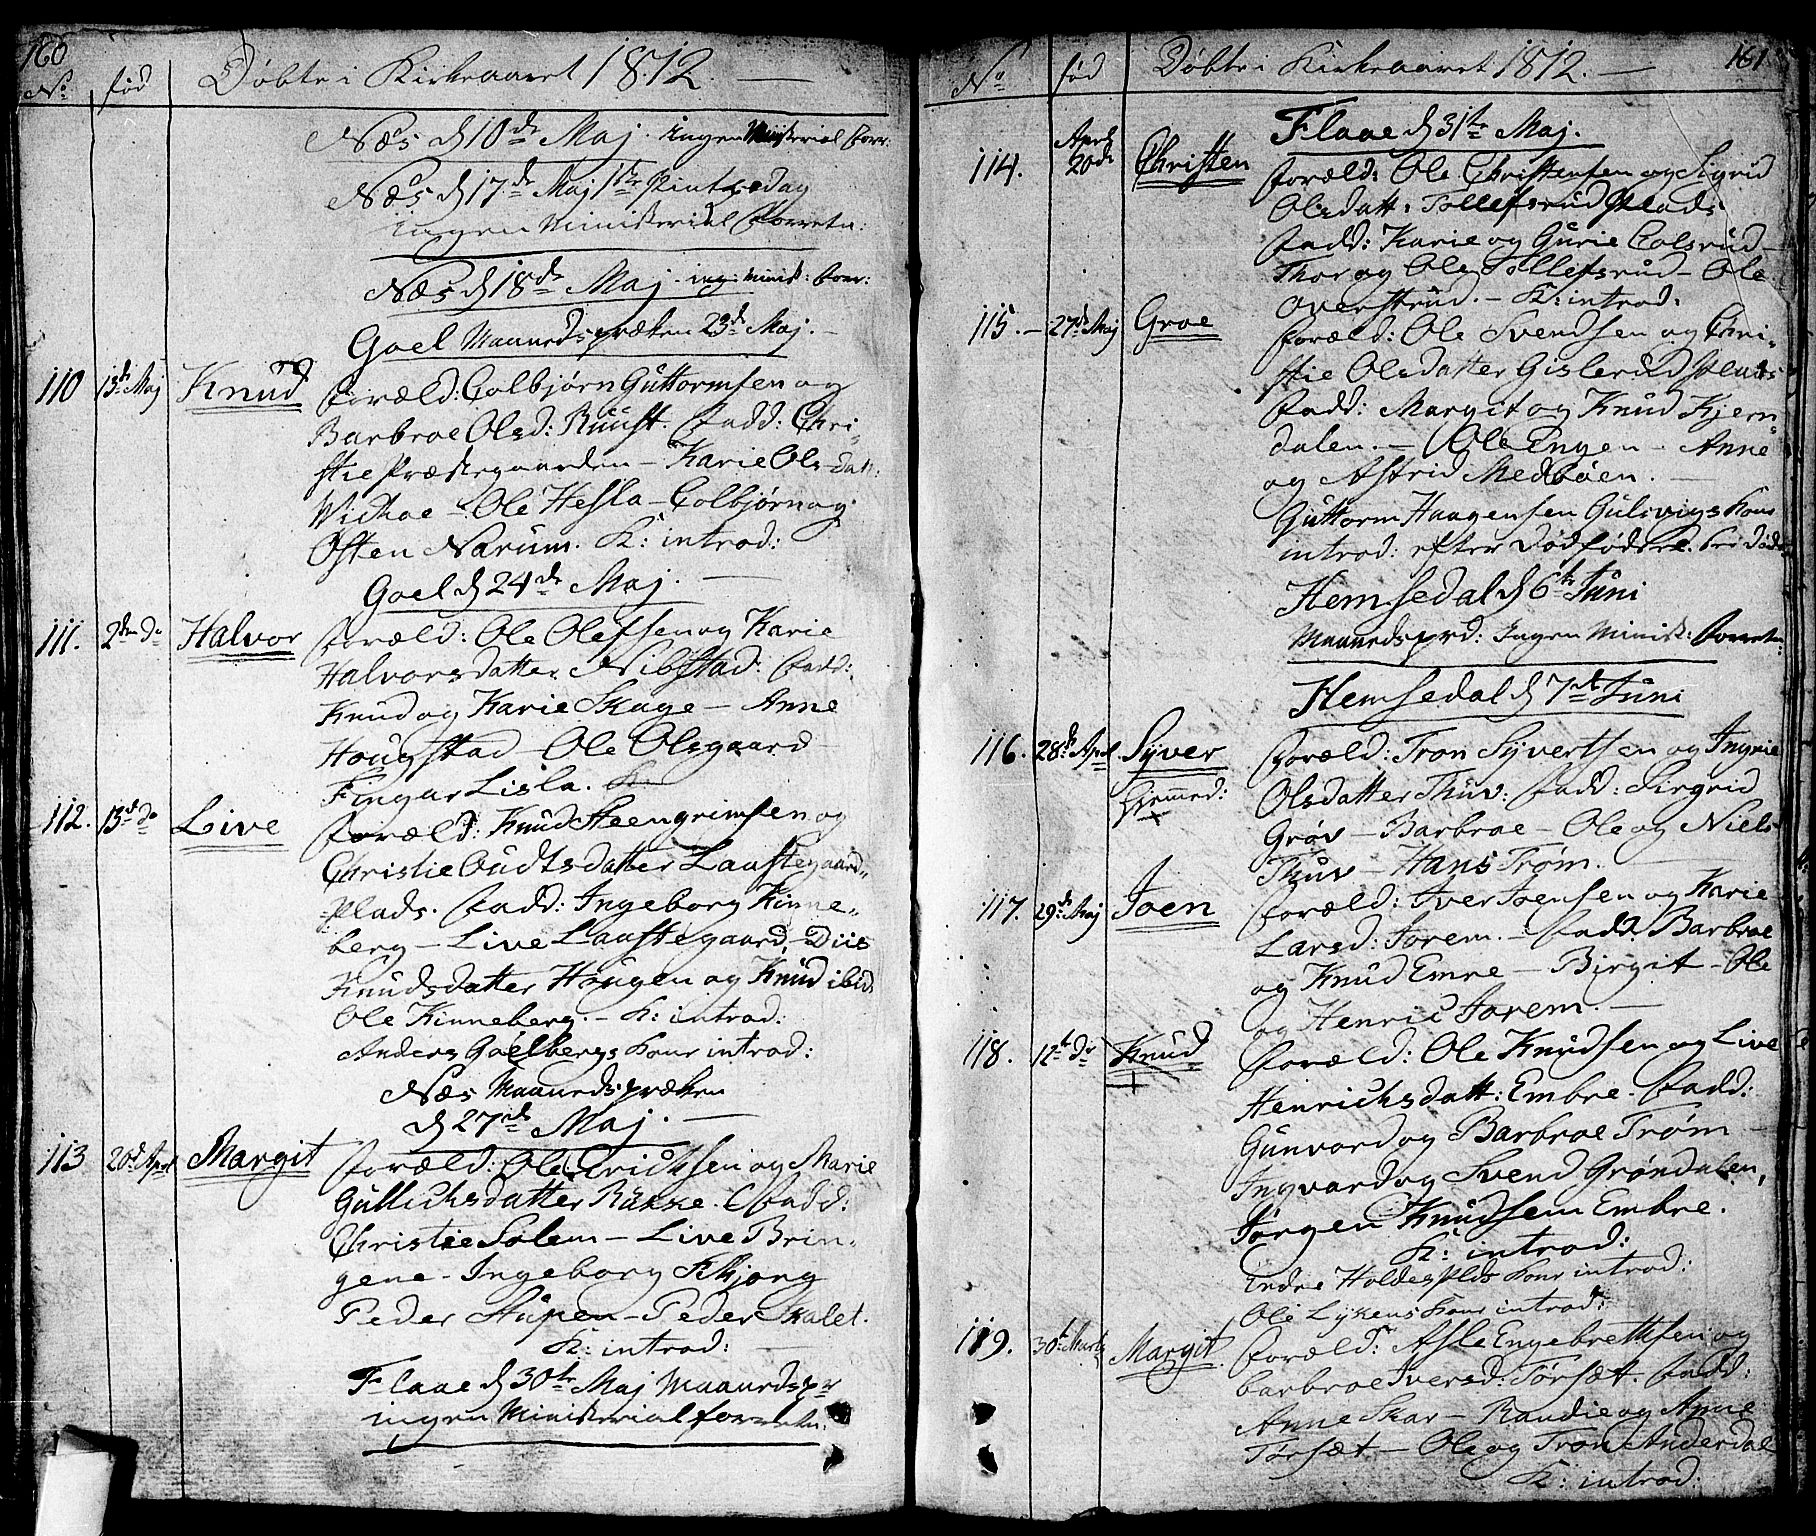 160
No. fød Døbte i Kirkeaaret 1812. —
Næs d 10de Maj. ingen Ministerial Forr:
Næs d 17de Maj 1ste Pintsedag
ingen Ministerial Forretn:
Næs d 18de Maj. ing: minist: Forr:
Goel Maanedspræken 23de Maj. —
110 13de Maj Knud Foræld: Colbjørn Guttormsen og
Barbroe Olsd: Ruust. Fadd: Chri-
stie Præstegaarden – Karie Olsdatt:
Wichoe – Ole Hesla – Colbjørn og
Østen Narum. K: introd:
Goel d 24de Maj. —
111. 2den do Halvor Foræld: Ole Olefsen og Karie
Halvorsdatter Nibstad: Fadd:
Knud og Karie Skage – Anne
Hougstad – Ole Olsgaard –
Fingar Lisla.
112. 13de do Live Foræld: Knud Steengrimsen og
Christie Oudtsdatter Laustegaard-
Plads. Fadd: Ingeborg Kinne-
berg – Live Laustegaard, – Diis
Knudsdatter Hougen og Knud ibid
Ole Kinneberg. – K: introd:
Anders Goelbergs Kone introd:
Næs Maanedspræken
d 27de Maj. —
113 20de Apr Margit Foræld: Ole Erichsen og Marie
Gullichsdatter Rukke. Fadd:
Christie Solem – Live Brin-
gene – Ingeborg Skjong
Peder Stupen – Peder Skalet.
K: introd:
Flaae d 30te Maj Maanedspr
ingen Ministerial forretn:
161
No fød Døbte i Kirkeaaret 1812. —
Flaae d 31te Maj.
114. April 20de Christen Foræld: Ole Christensen og Sigrid
Olsdatt: Tollefsrud Plads
Fadd: Karie og Gurie Colsrud –
Thor og Ole Tollefsrud – Ole
Overstrud. – K: introd:
115. – 27de Maj Groe Foræld: Ole Svendsen og Chri-
stie Olsdatter Gislerud Plads
Fadd: Margit og Knud Kjern-
dalen. – Ole Engen – Anne
og Astrid Medbøen. —
Guttorm Haagensen Gulsvigs Kone
introd: efter Dødfødsel.
Hemsedal d 6te Juni
Maanedsprd: Ingen Minist: Forretn:
Hemsedal d 7de Juni
116. 28de Apr. Syver Foræld: Tron Syvertsen og Ingrie
Hiemmed: Olsdatter Thuv: Fadd: Sigrid
Grøv – Barbroe – Ole og Niels
Thuv – Hans Trøm. —
117. 29de Maj Joen Foræld: Iver Joensen og Karie
Larsd: Jorem. – Fadd: Barbroe
og Knud Emre – Birgit – Ole
og Henric Jorem. —
118. 12te do Knud Foræld: Ole Knudsen og Live
Henrichsdatt: Embre. Fadd:
Gunvord og Barbroe Trøm –
Ingvard og Svend Grøndalen,
Jørgen Knudsen Embre.
K: introd:
Endre Holdes Plds Kone introd:
Ole Lykens Kone introd:
119. 30te Marts Margit Foræld: Asle Engebrethsen og
barbroe Iversd: Tørsæt. Fadd:
Anne Skar – Randie og Anne
Tørsæt – Ole og Tron Anderdal
K: introd: